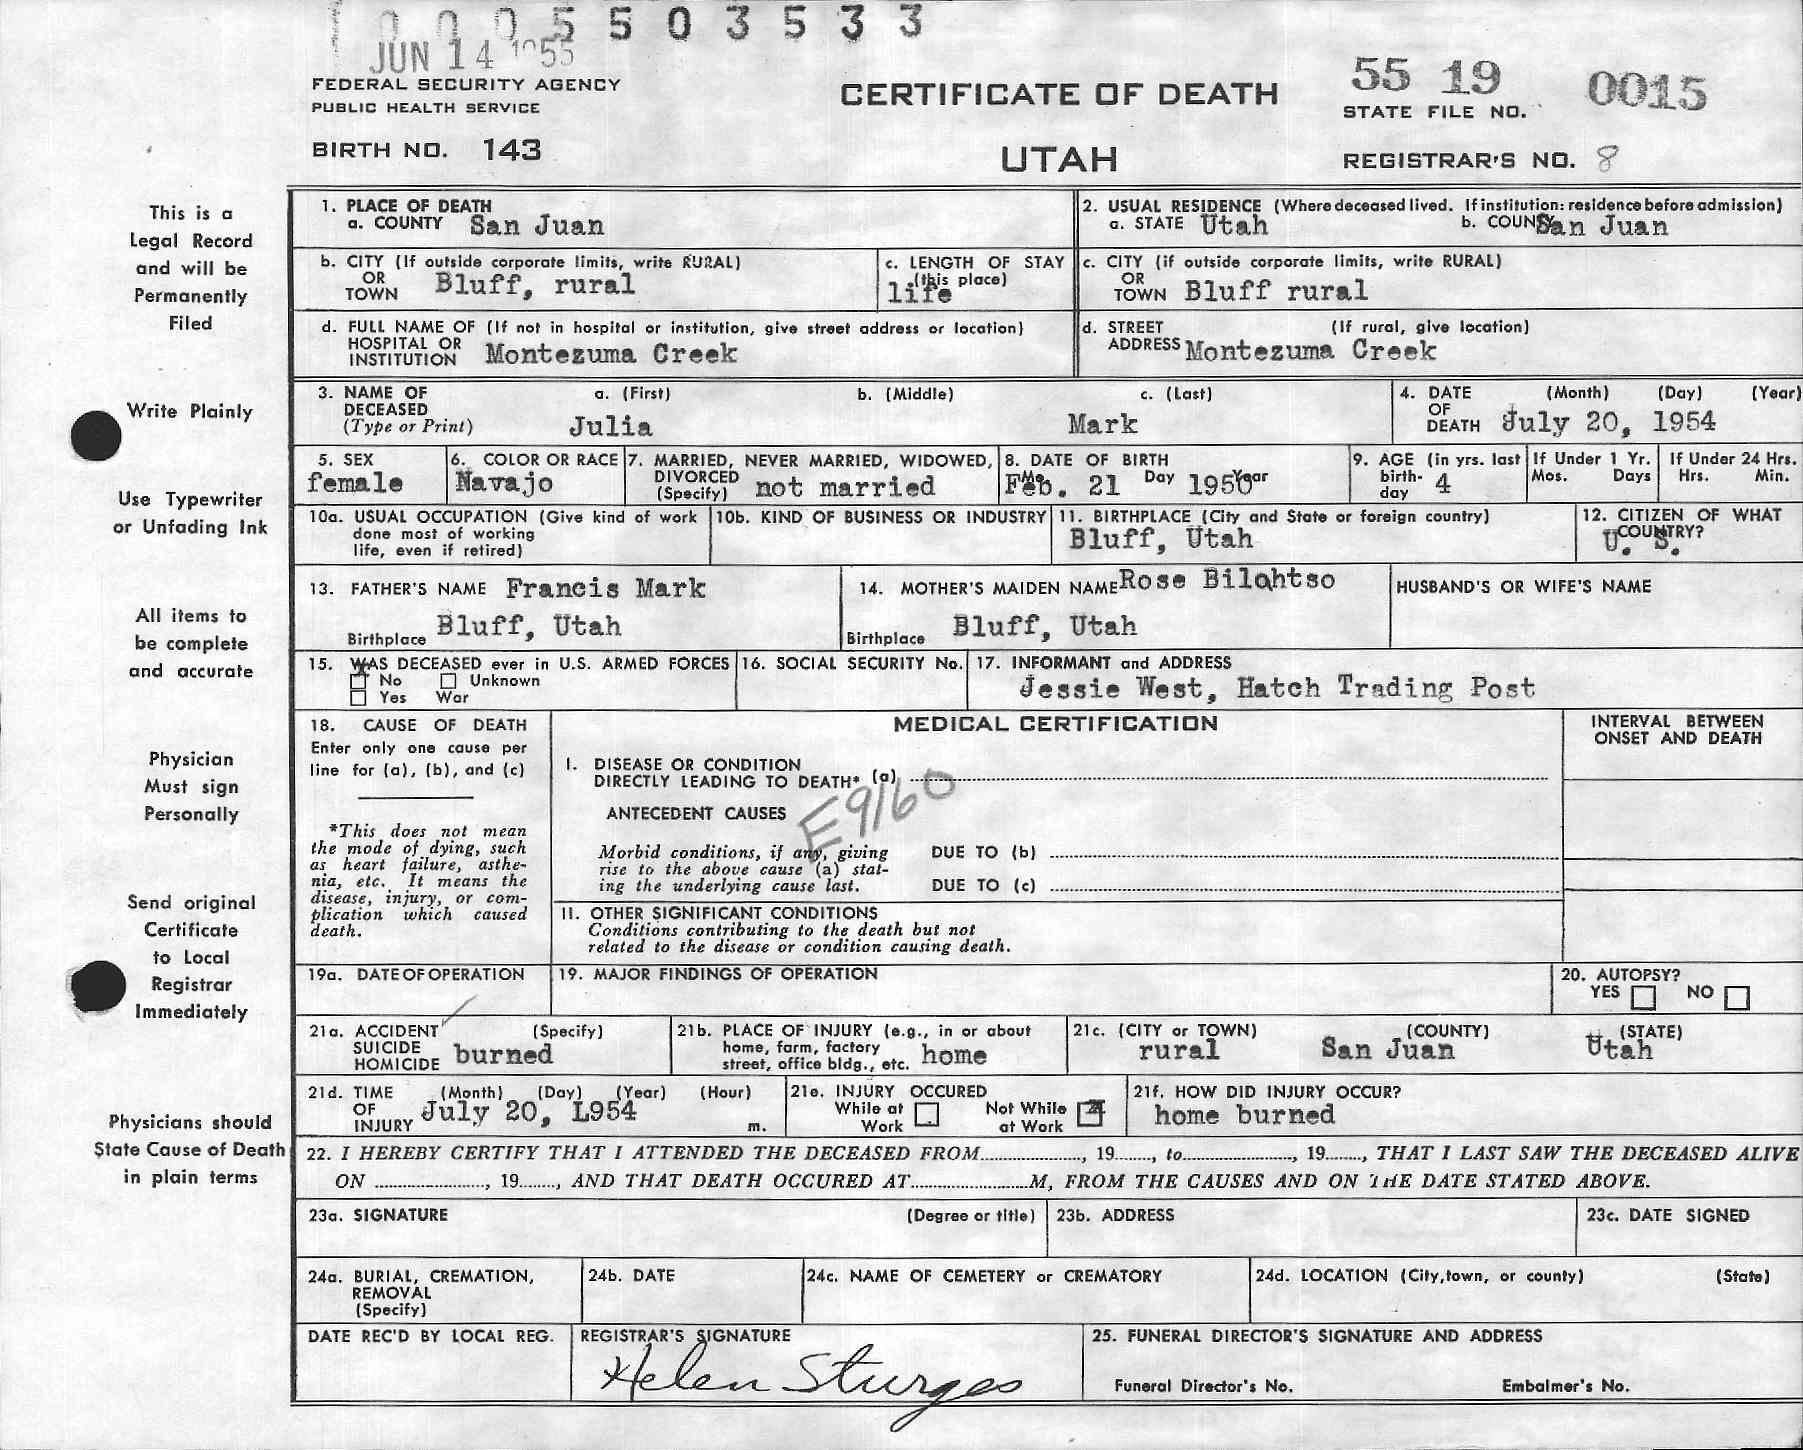 0 0 0 5 5 0 3 5 3 3
JUN 14 1955
FEDERAL SECURITY AGENCY
PUBLIC HEALTH SERVICE
BIRTH NO. 143
CERTIFICATE OF DEATH
UTAH
55 19 0015
STATE FILE NO.
REGISTRAR'S NO. 8
This is a
Legal Record
and will be
Permanently
Filed
Write Plainly
Use Typewriter
or Unfading Ink
All items to
be complete
and accurate
Physician
Must sign
Personally
Send original
Certificate
to Local
Registrar
Immediately
Physicians should
State Cause of Death
in plain terms
1. PLACE OF DEATH
a. COUNTY San Juan
2. USUAL RESIDENCE (Where deceased lived. If institution: residence before admission)
a. STATE Utah b. COUNTY San Juan
b. CITY (If outside corporate limits, write RURAL)
OR
TOWN Bluff, rural
c. LENGTH OF STAY
(this place)
life
c. CITY (if outside corporate limits, write RURAL)
OR
TOWN Bluff rural
d. FULL NAME OF (If not in hospital or institution, give street address or location)
HOSPITAL OR
INSTITUTION Montezuma Creek
d. STREET (If rural, give location)
ADDRESS Montezuma Creek
3. NAME OF a. (First) b. (Middle) c. (Last)
DECEASED
(Type or Print) Julia Mark
4. DATE (Month) (Day) (Year)
OF
DEATH July 20, 1954
5. SEX
female
6. COLOR OR RACE
Navajo
7. MARRIED, NEVER MARRIED, WIDOWED,
DIVORCED
(Specify) not married
8. DATE OF BIRTH
Mo. Day Year
Feb. 21 1950
9. AGE (in yrs. last
birth-
day 4
If Under 1 Yr.
Mos. Days
If Under 24 Hrs.
Hrs. Min.
10a. USUAL OCCUPATION (Give kind of work
done most of working
life, even if retired)
10b. KIND OF BUSINESS OR INDUSTRY
11. BIRTHPLACE (City and State or foreign country)
Bluff, Utah
12. CITIZEN OF WHAT
COUNTRY?
U. S.
13. FATHER'S NAME Francis Mark
Birthplace Bluff, Utah
14. MOTHER'S MAIDEN NAME Rose Bilahtso
Birthplace Bluff, Utah
HUSBAND'S OR WIFE'S NAME
15. WAS DECEASED ever in U.S. ARMED FORCES
No Unknown
Yes War
16. SOCIAL SECURITY No.
17. INFORMANT and ADDRESS
Jessie West, Hatch Trading Post
18. CAUSE OF DEATH
Enter only one cause per
line for (a), (b), and (c)
*This does not mean
the mode of dying, such
as heart failure, asthe-
nia, etc. It means the
disease, injury, or com-
plication which caused
death.
MEDICAL CERTIFICATION
I. DISEASE OR CONDITION
DIRECTLY LEADING TO DEATH* (a)
E9160
ANTECEDENT CAUSES
Morbid conditions, if any, giving
rise to the above cause (a) stat-
ing the underlying cause last.
DUE TO (b)
DUE TO (c)
II. OTHER SIGNIFICANT CONDITIONS
Conditions contributing to the death but not
related to the disease or condition causing death.
INTERVAL BETWEEN
ONSET AND DEATH
19a. DATE OF OPERATION
19. MAJOR FINDINGS OF OPERATION
20. AUTOPSY?
YES NO
21a. ACCIDENT (Specify)
SUICIDE
HOMICIDE burned
21b. PLACE OF INJURY (e.g., in or about
home, farm, factory
street, office bldg., etc. home
21c. (CITY or TOWN) (COUNTY) (STATE)
rural San Juan Utah
21d. TIME (Month) (Day) (Year) (Hour)
OF
INJURY July 20, L954 m.
21e. INJURY OCCURED
While at Work Not While at Work
21f. HOW DID INJURY OCCUR?
home burned
22. I HEREBY CERTIFY THAT I ATTENDED THE DECEASED FROM................, 19......., to................, 19......., THAT I LAST SAW THE DECEASED ALIVE
ON ................, 19......., AND THAT DEATH OCCURED AT................M, FROM THE CAUSES AND ON THE DATE STATED ABOVE.
23a. SIGNATURE (Degree or title)
23b. ADDRESS
23c. DATE SIGNED
24a. BURIAL, CREMATION,
REMOVAL
(Specify)
24b. DATE
24c. NAME OF CEMETERY or CREMATORY
24d. LOCATION (City, town, or county) (State)
DATE REC'D BY LOCAL REG.
REGISTRAR'S SIGNATURE
Helen Sturges
25. FUNERAL DIRECTOR'S SIGNATURE AND ADDRESS
Funeral Director's No. Embalmer's No.